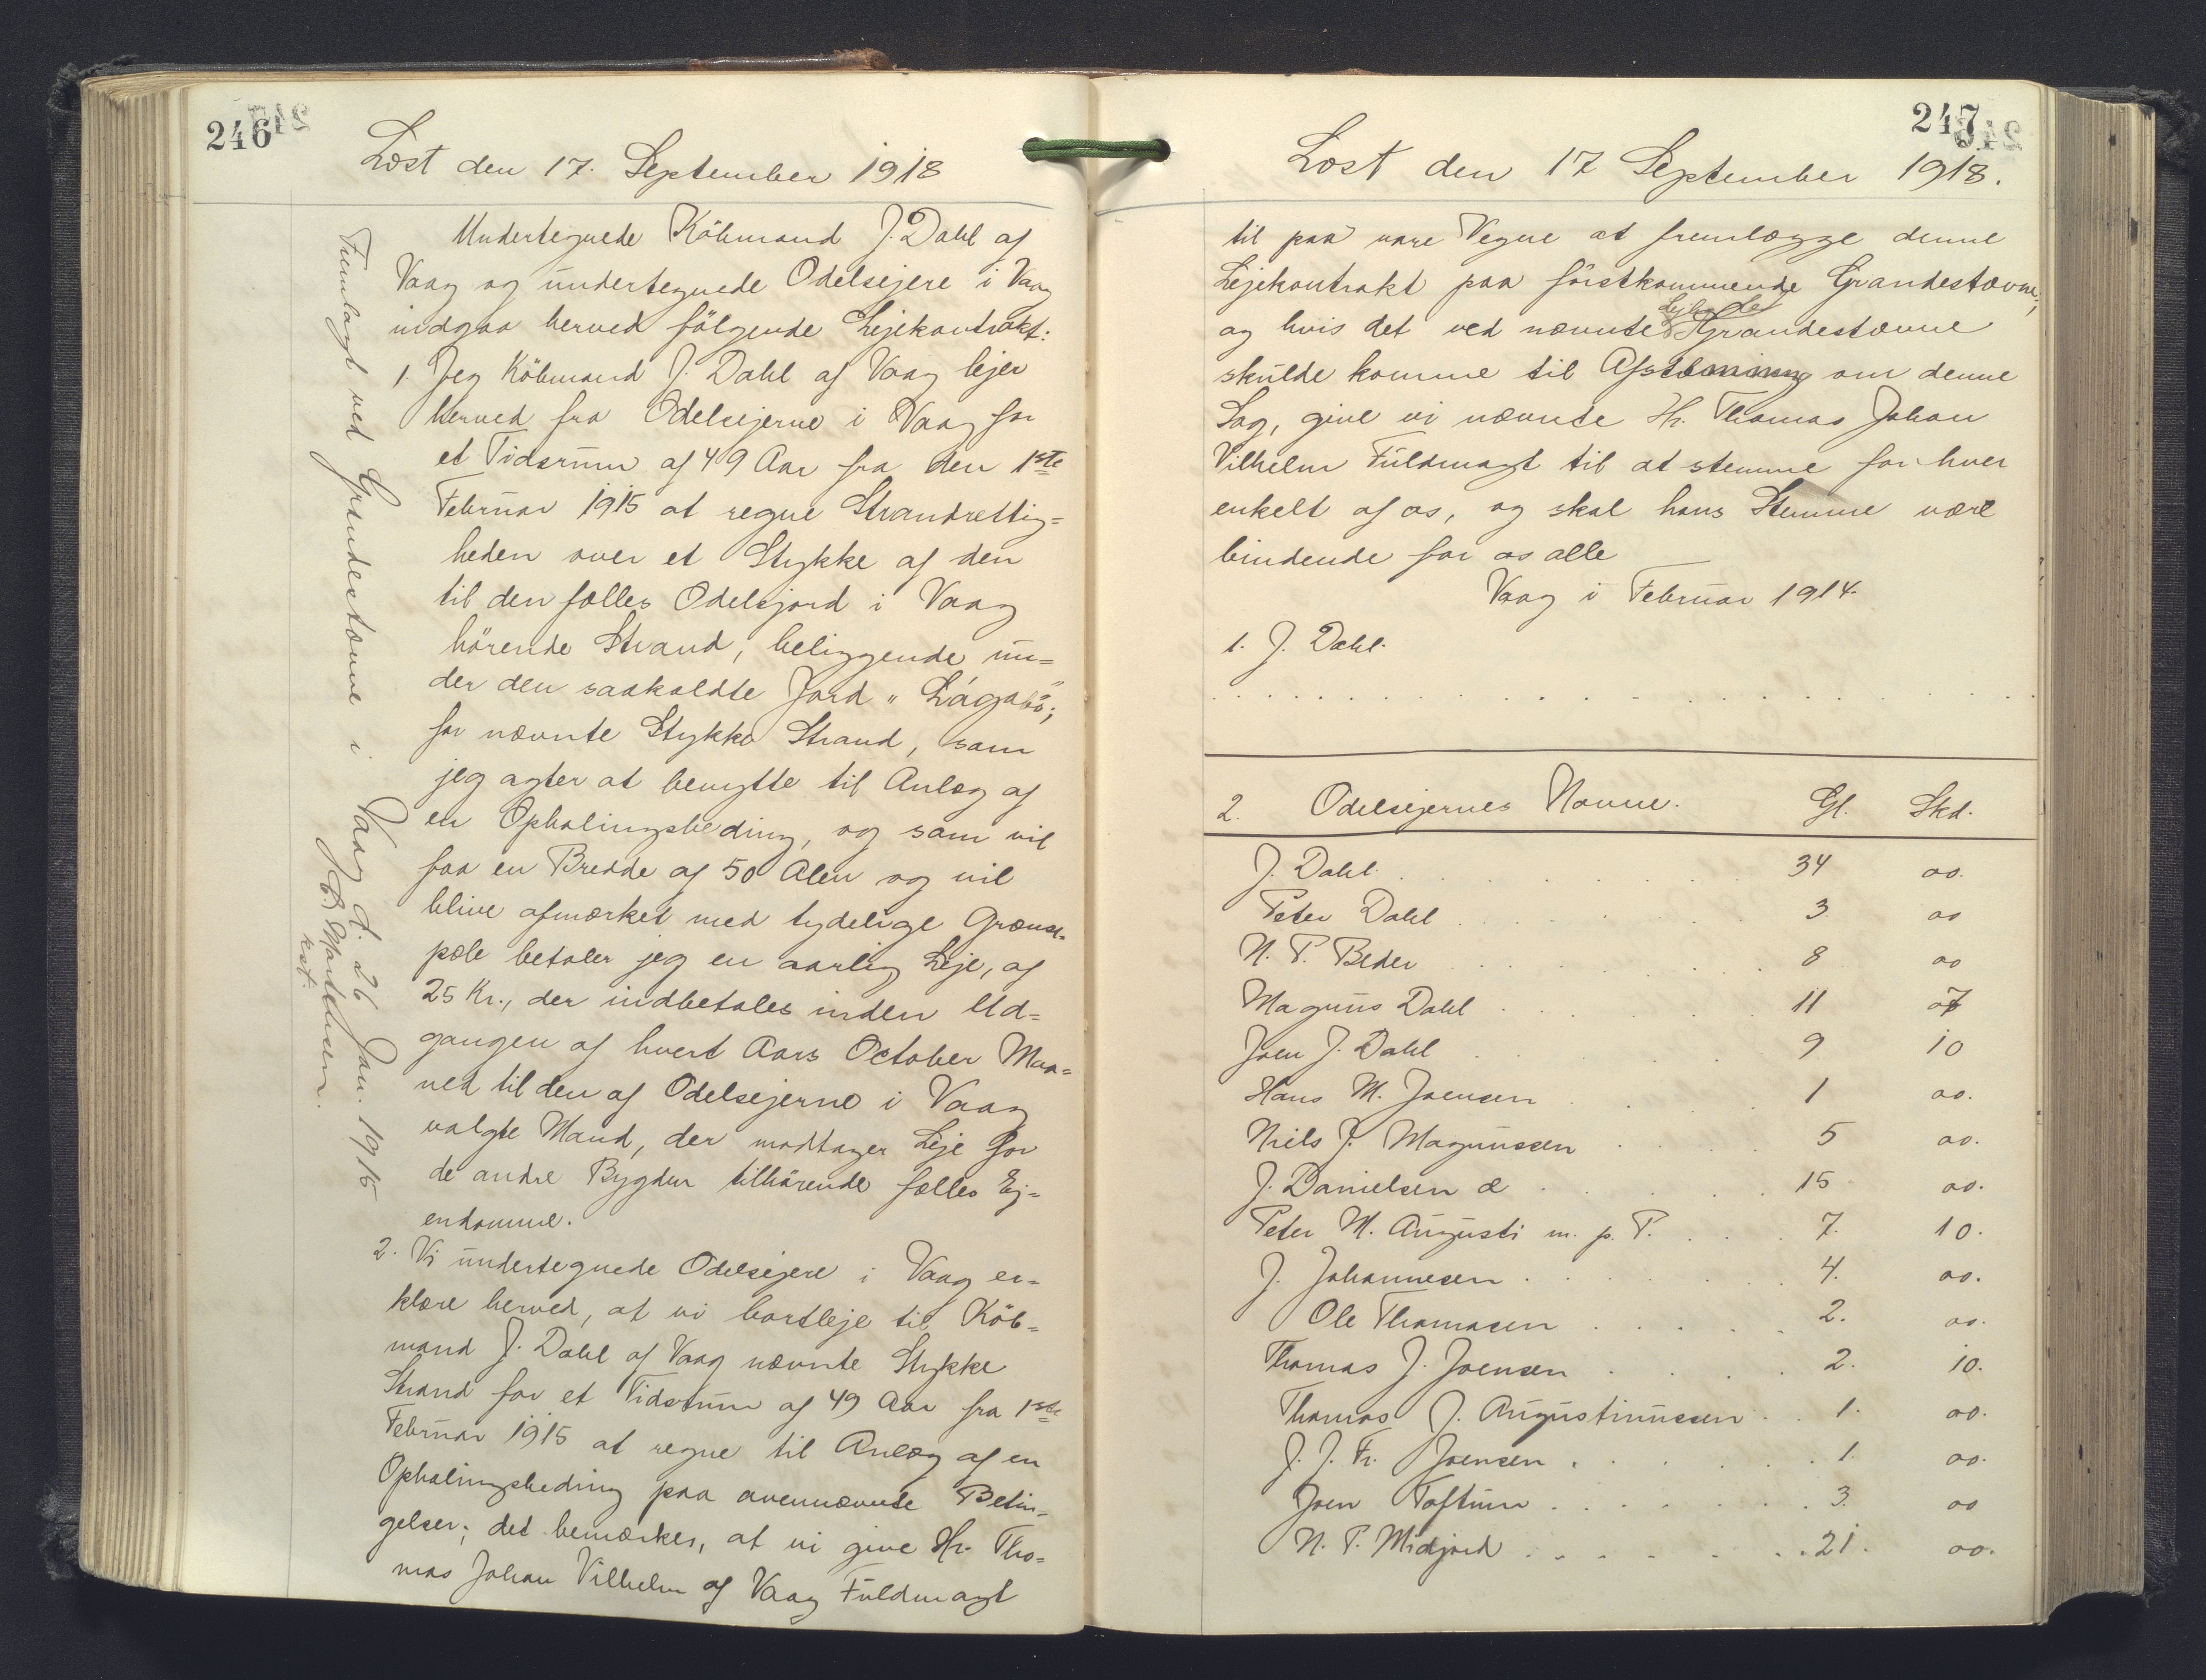 246
Læst den 17. September 1918
Undertegnede Köbmand J. Dahl af
Vaag og undertegnede Odelsejere i Vaag
indgaa herved fölgende Lejekontrakt:
1. Jeg Köbmand J. Dahl af Vaag lejer
herved fra Odelsejerne i Vaag for
et Tidsrum af 49 Aar fra den 1ste
Februar 1915 at regne Strandrettig=
heden over et Stykke af den
til den fælles Odelsjord i Vaag
hörende Strand, beliggende un=
der den saakaldte Jord "Lágabö";
for nævnte Stykke Strand, som
jeg agter at benytte til Anlæg af
en Ophalingsbeding, og som vil
faa en Bredde af 50 Alen og vil
blive afmærket med tydelige Grænse-
pæle betaler jeg en aarlig Leje, af
25 Kr., der indbetales inden Ud=
gangen af hvert Aars October Maa=
ned til den af Odelsejerne i Vaag
valgte Mand, der modtager Leje for
de andre Bygden tilhörende fælles Ej=
endomme.
2. Vi undertegnede Odelsejere i Vaag er=
klære herved, at vi bortleje til Köb=
mand J. Dahl af Vaag nævnte Stykke
Strand for et Tidsrum af 49 Aar fra 1ste
Februar 1915 at regne til Anlæg af en
Ophalingsbeding paa ovennævnte Betin=
gelser; det bemærkes, at vi give Hr. Tho=
mas Johan Vilhelm af Vaag Fuldmagt
Fremlagt ved Grandestævne i Vaag d. 26 Jan. 1915
Mortensen.
kst.
247
Læst den 17 September 1918.
til paa vare Vegne at fremlægge denne
Lejekontrakt paa förstkommende Grandestævne;
og hvis det ved nævnte Grandestævne
skulde komme til Afstemning om denne
Sag, give vi nævnte Hr. Thomas Johan
Vilhelm Fuldmagt til at stemme for hver
enkelt af os, og skal hans Stemme være
bindende for os alle
Vaag i Februar 1914.
1. J. Dahl.
2. Odelsejernes Navne. Gl. Skd.
J. Dahl. 34 00.
Peter Dahl 3 00
N. P. Beder 8 00
Magnus Dahl 11 07
Joen J. Dahl 9 10
Hans M. Joensen 1 00.
Niels J. Magnussen 5 00.
J. Danielsen d 15 00.
Peter M. Augusti m. p. P. 7. 10.
J. Johannesen 4. 00.
Ole Thomasen 2. 00.
Thomas J. Joensen 2. 10.
Thomas J. Augustinussen 1. 00.
J. J. Fr. Joensen 1. 00.
Joen Toftum 3. 00
N. P. Midjord 21. 00.